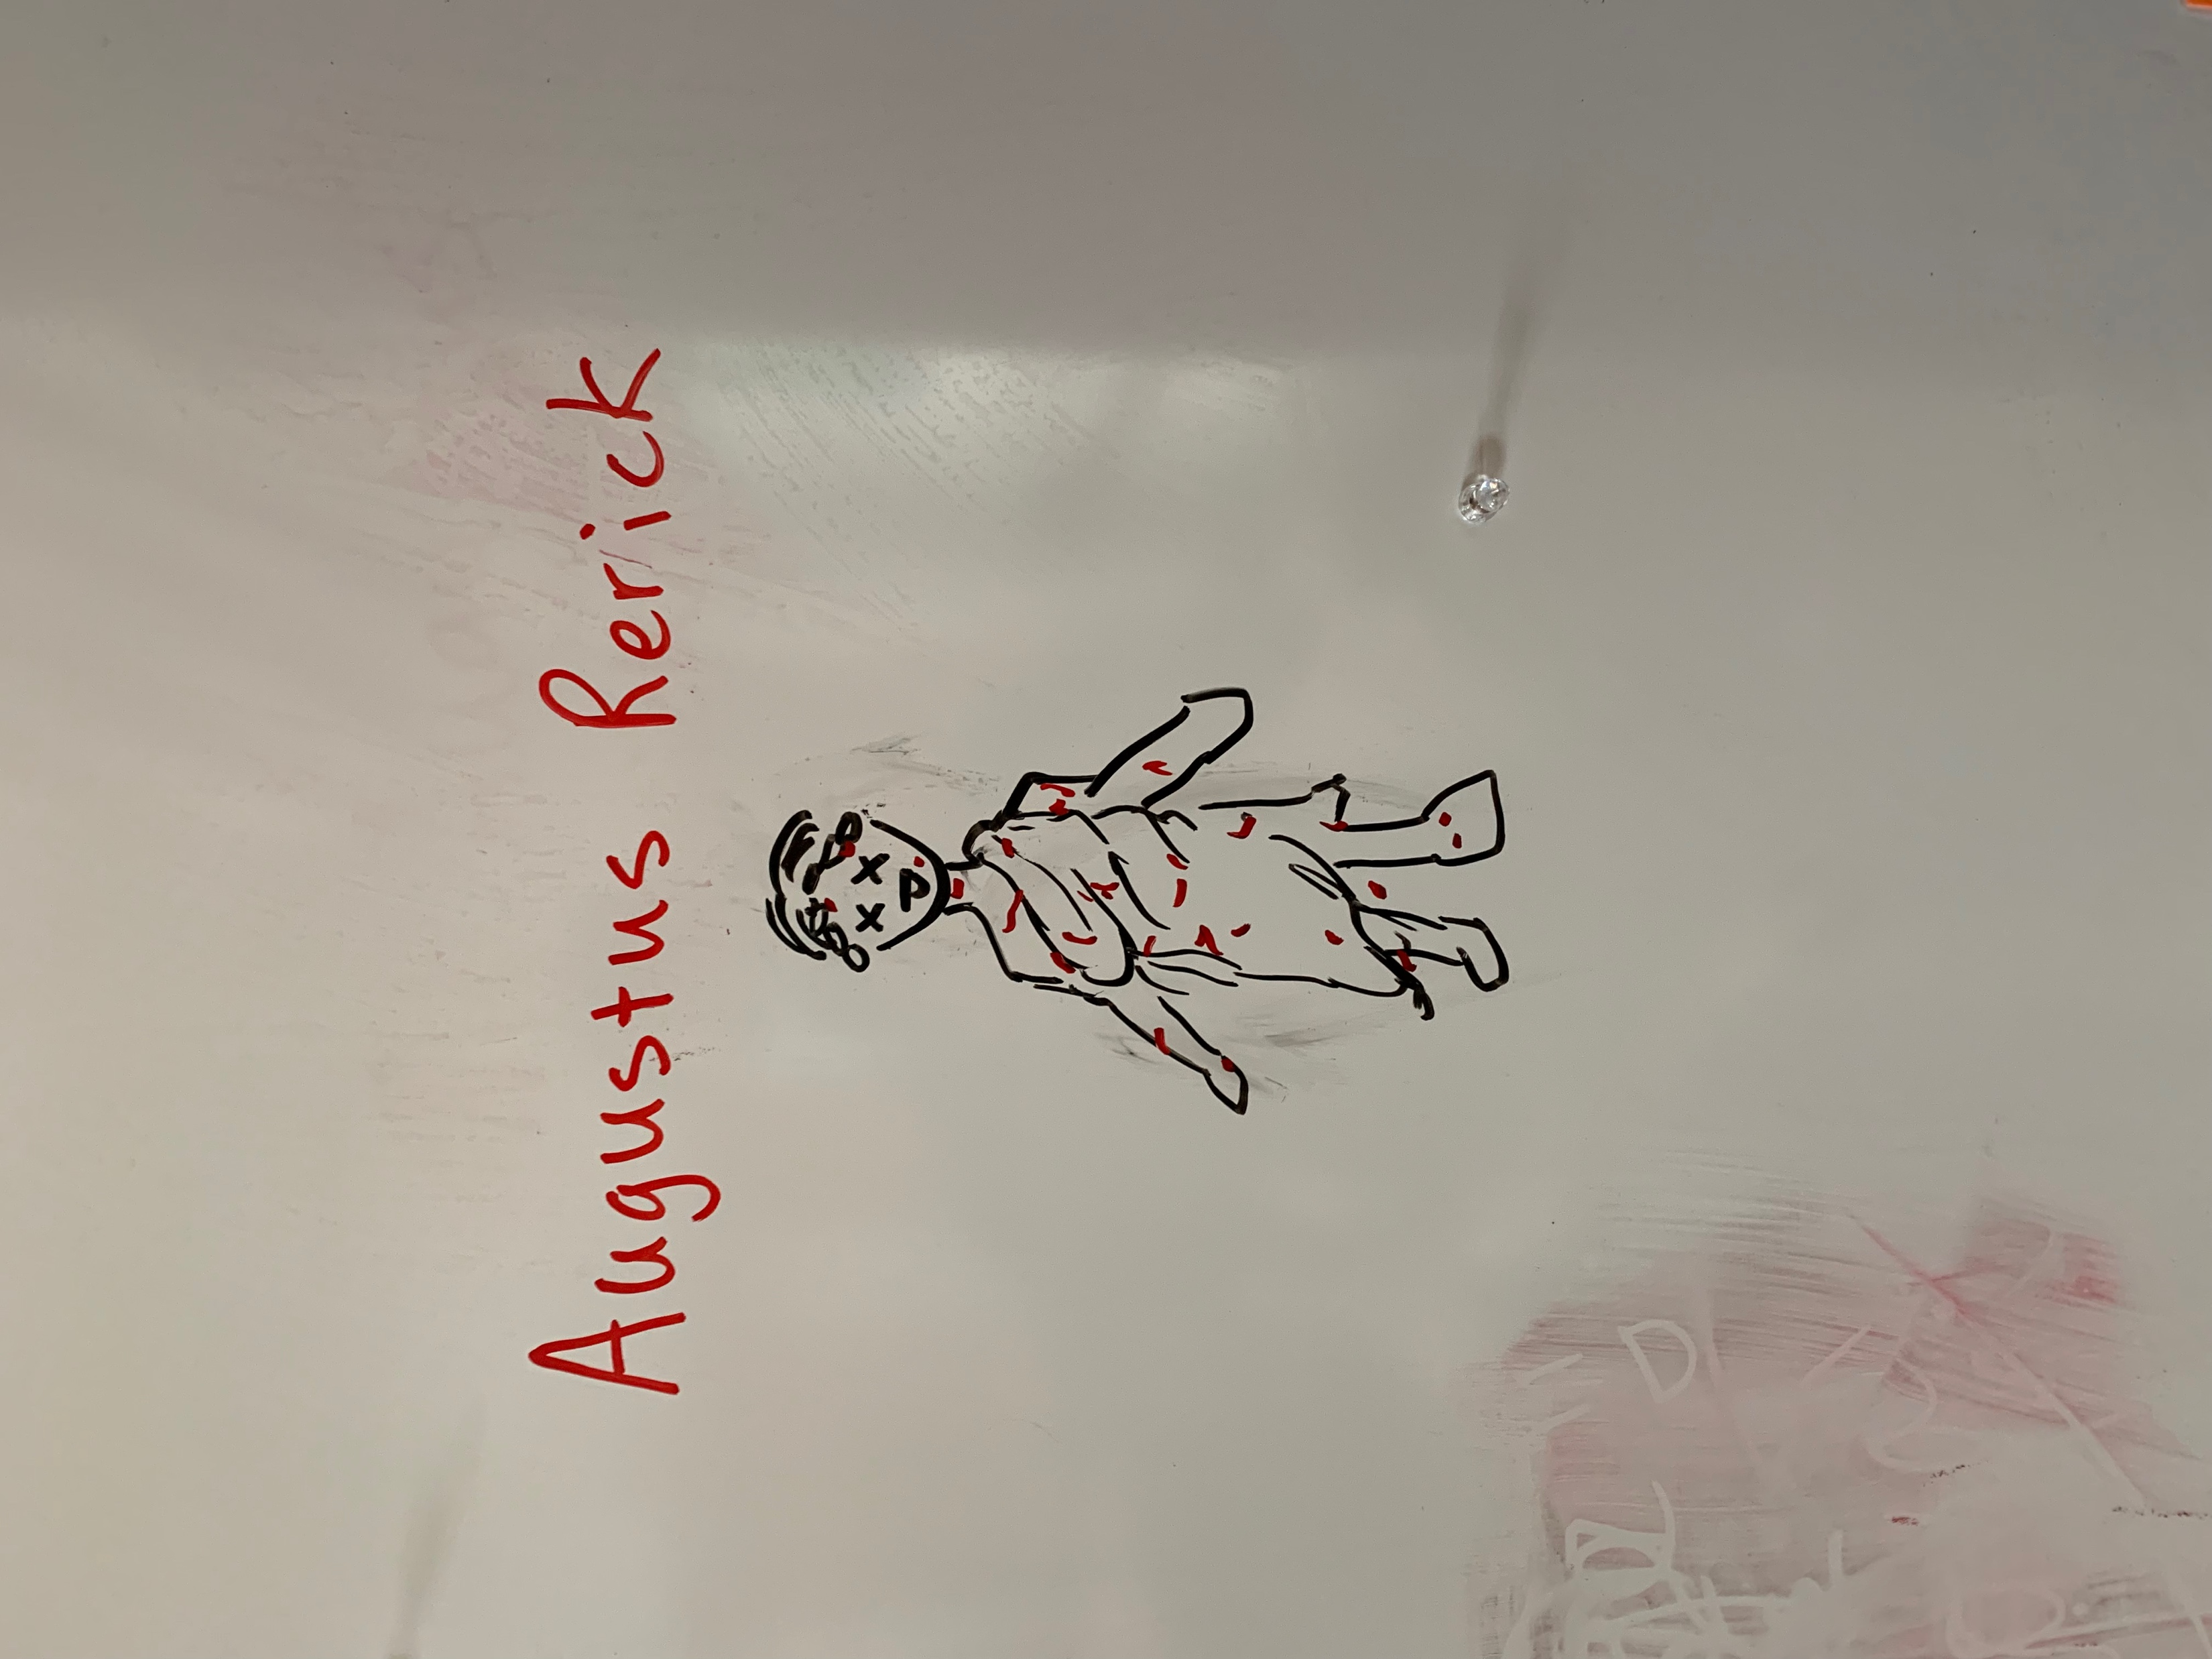 Augustus Rerick